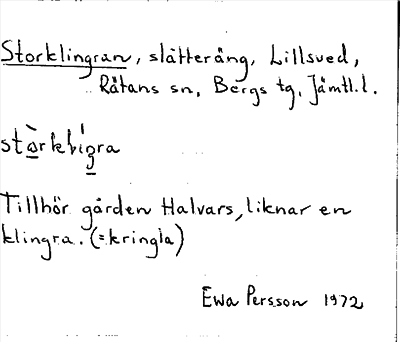 Storklingran, slätteräng, Lillsved,
Rätans sn, Bergs tg, Jämtl.l.
Tillhör gården Halvars, liknar en
klingra. (=kringla)
Ewa Persson 1972